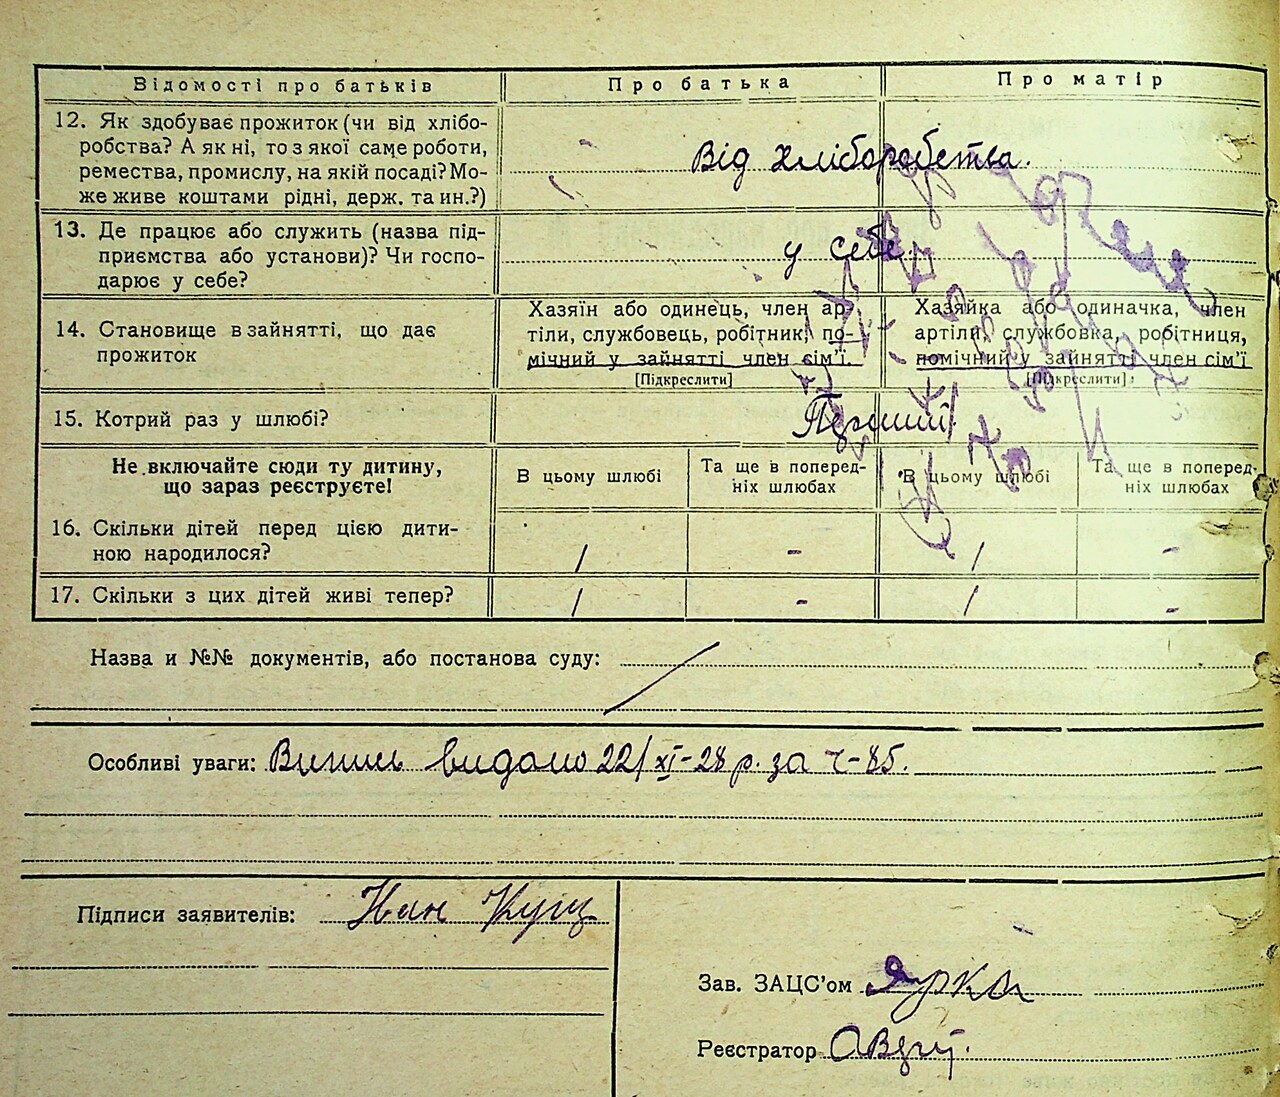 Відомості про батьків
Про батька
Про матір
12. Як здобуває прожиток (чи від хлібо-
робства? А як ні, то з якої саме роботи,
ремества, промислу, на якій посаді? Мо-
же живе коштами рідні, держ. та ин.?)
Від хліборобства.
13. Де працює або служить (назва під-
приємства або установи)? Чи госпо-
дарює у себе?
у себе
14. Становище в зайнятті, що дає
прожиток
Хазяїн або одинець, член ар-
тіли, службовець, робітник, по-
мічний у зайнятті член сім'ї.
[Підкреслити]
Хазяйка або одиначка, член
артіли, службовка, робітниця,
помічний у зайнятті член сім'ї
[Підкреслити]
15. Котрий раз у шлюбі?
Перший
Не включайте сюди ту дитину,
що зараз реєструєте!
В цьому шлюбі
Та ще в поперед-
ніх шлюбах
В цьому шлюбі
Та ще в поперед-
ніх шлюбах
16. Скільки дітей перед цією дити-
ною народилося?
/ - / -
17. Скільки з цих дітей живі тепер?
/ - / -
Назва и №№ документів, або постанова суду:
Особливі уваги: Випись видано 22/XI-28 р. за ч-85.
Підписи заявителів: Іван Кущ
Зав. ЗАЦС'ом
Реєстратор